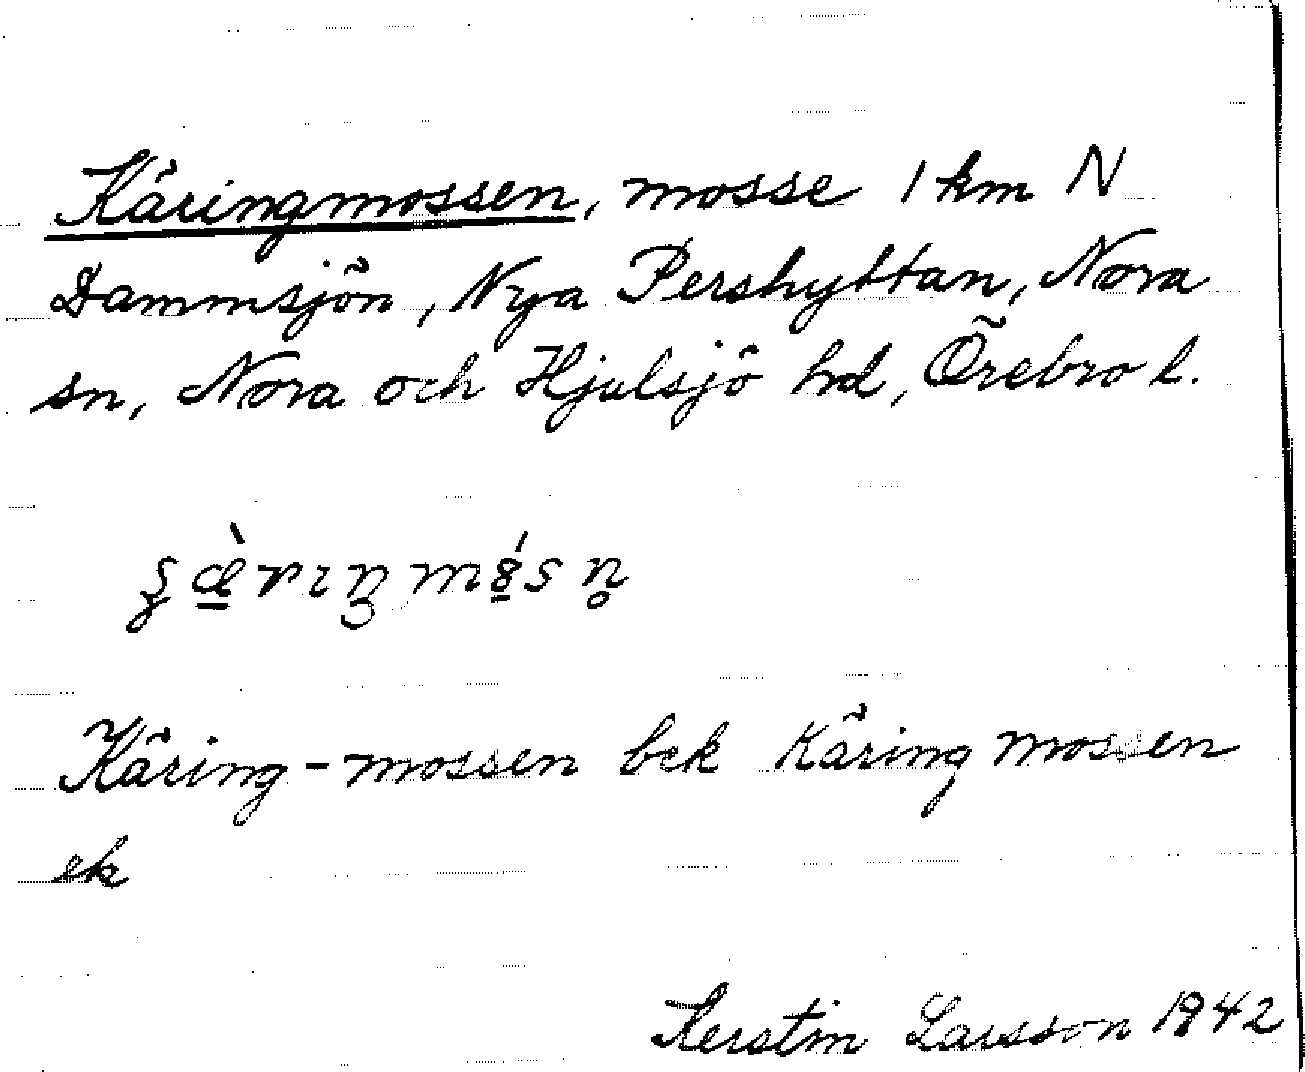 Käringmossen, mosse 1 km N
Dammsjön, Nya Pershyttan, Nora
sn, Nora och Hjulsjö hd, Örebro l.
Käring-mossen bek Käringmossen
ek
Kerstin Larsson 1942